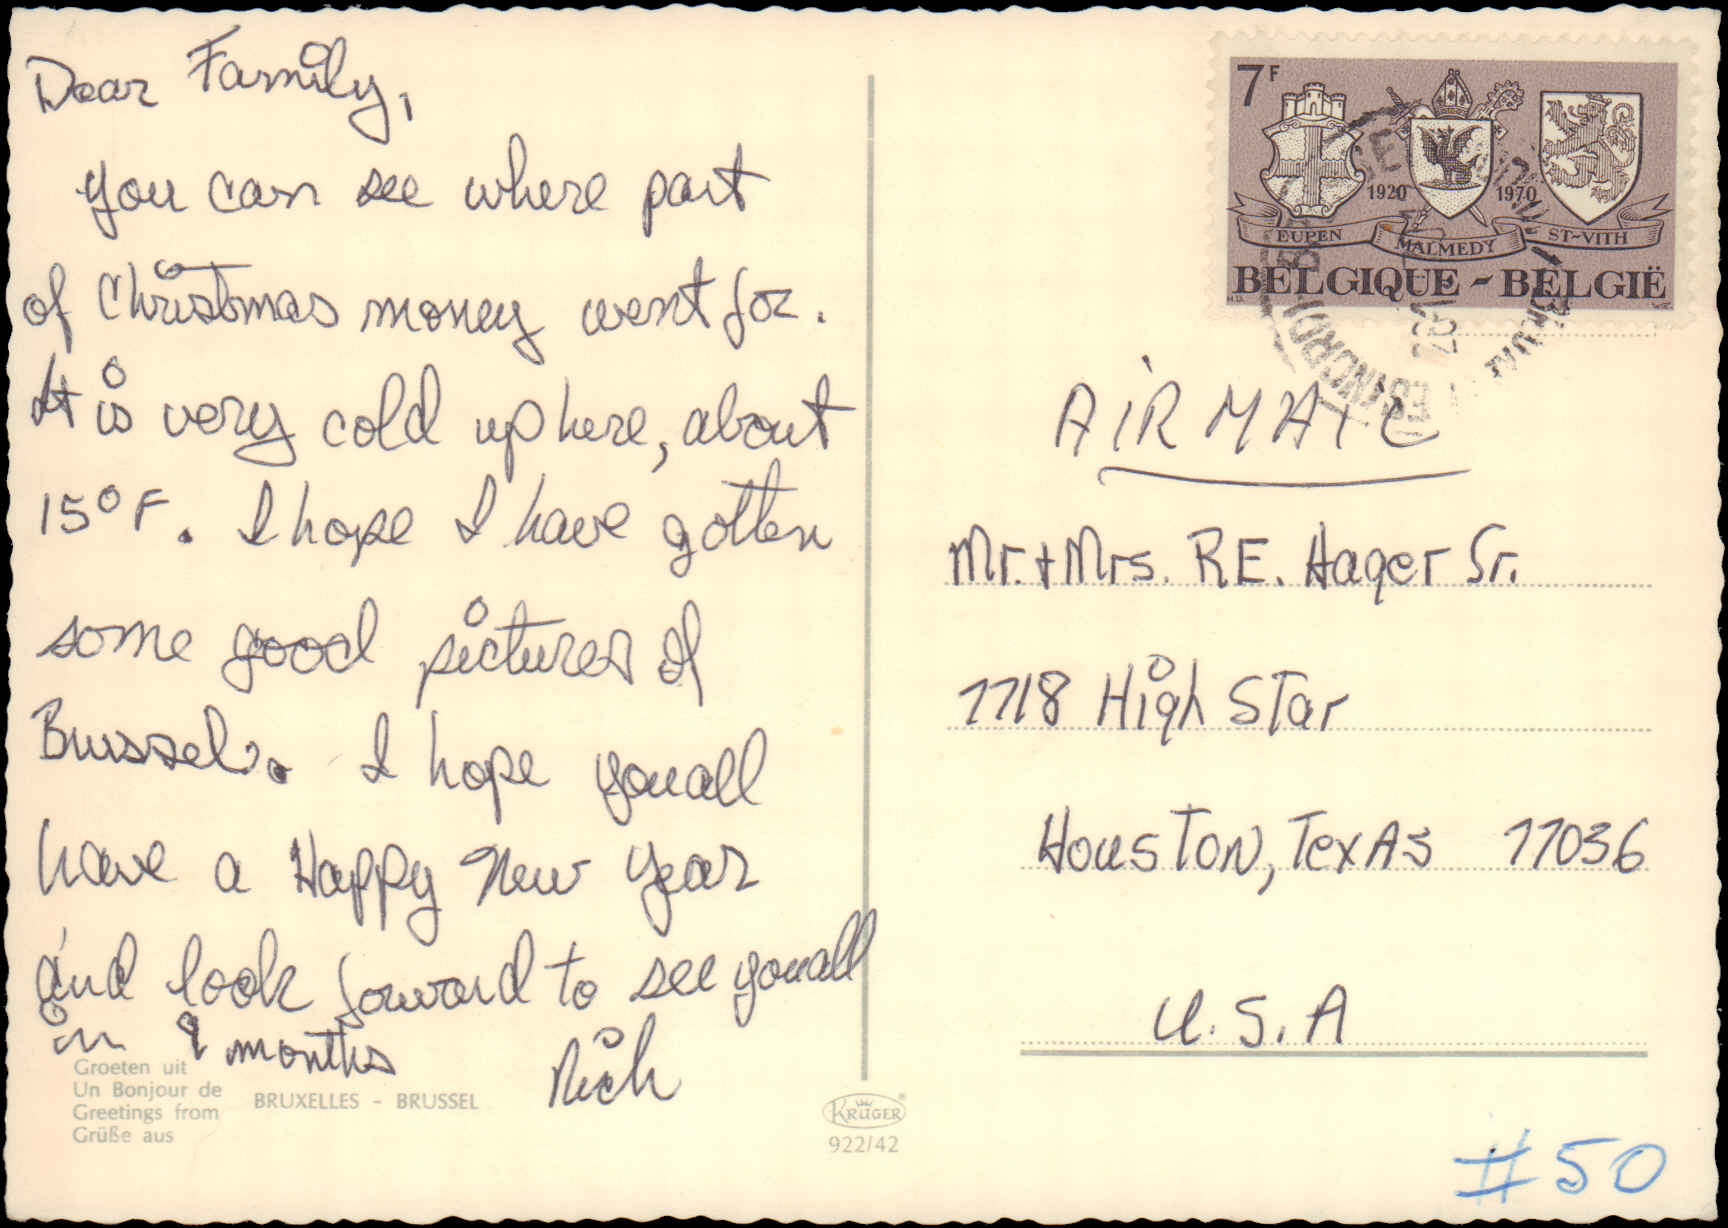 Dear Family,
you can see where part
of Christmas money went for.
It is very cold up here, about
15° F. I hope I have gotten
some good pictures of
Brussels. I hope you all
have a Happy New Year
and look forward to see you all
in 9 months
Rich
Groeten uit
Un Bonjour de
Greetings from
Grüße aus
BRUXELLES - BRUSSEL
KRÜGER
922/42
7F
1920 1970
EUPEN MALMEDY ST-VITH
BELGIQUE - BELGIË
AIR MAIL
Mr. + Mrs. R.E. Hager Sr.
7718 High Star
Houston, Texas 77036
U.S.A
#50